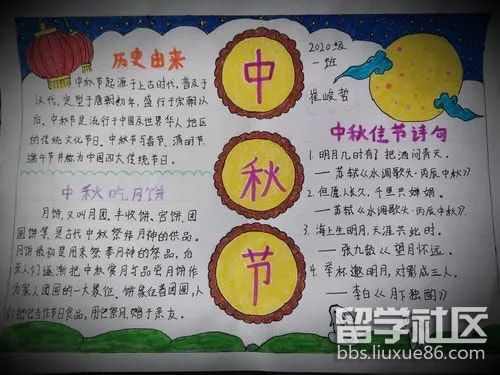 历史由来
中秋节起源于上古时代，普及于
汉代，定型于唐朝初年，盛行于宋朝以
后。中秋节是流行于中国及世界华人地区
的传统文化节日。中秋节与春节、清明节
端午节并称为中国四大传统节日。
中秋吃月饼
月饼，又叫月团、丰收饼、宫饼、团
圆饼等，是古代中秋祭拜月神的供品。
月饼最初是用来祭奉月神的祭品，后
来人们逐渐把中秋赏月与品尝月饼作
为家人团圆的一大象征。饼象征着团圆，人
们把它当作节日食品，用它祭月、赠于亲友。
中
秋
节
2020级
一班
崔峻哲
中秋佳节诗句
1. 明月几时有？把酒问青天。
— 苏轼《水调歌头·丙辰中秋》
2. 但愿人长久，千里共婵娟。
— 苏轼《水调歌头·丙辰中秋》.
3. 海上生明月，天涯共此时。
— 张九龄《望月怀远。
4. 举杯邀明月，对影成三人。
— 李白《月下独酌》
留学社区
bbs.liuxue86.com